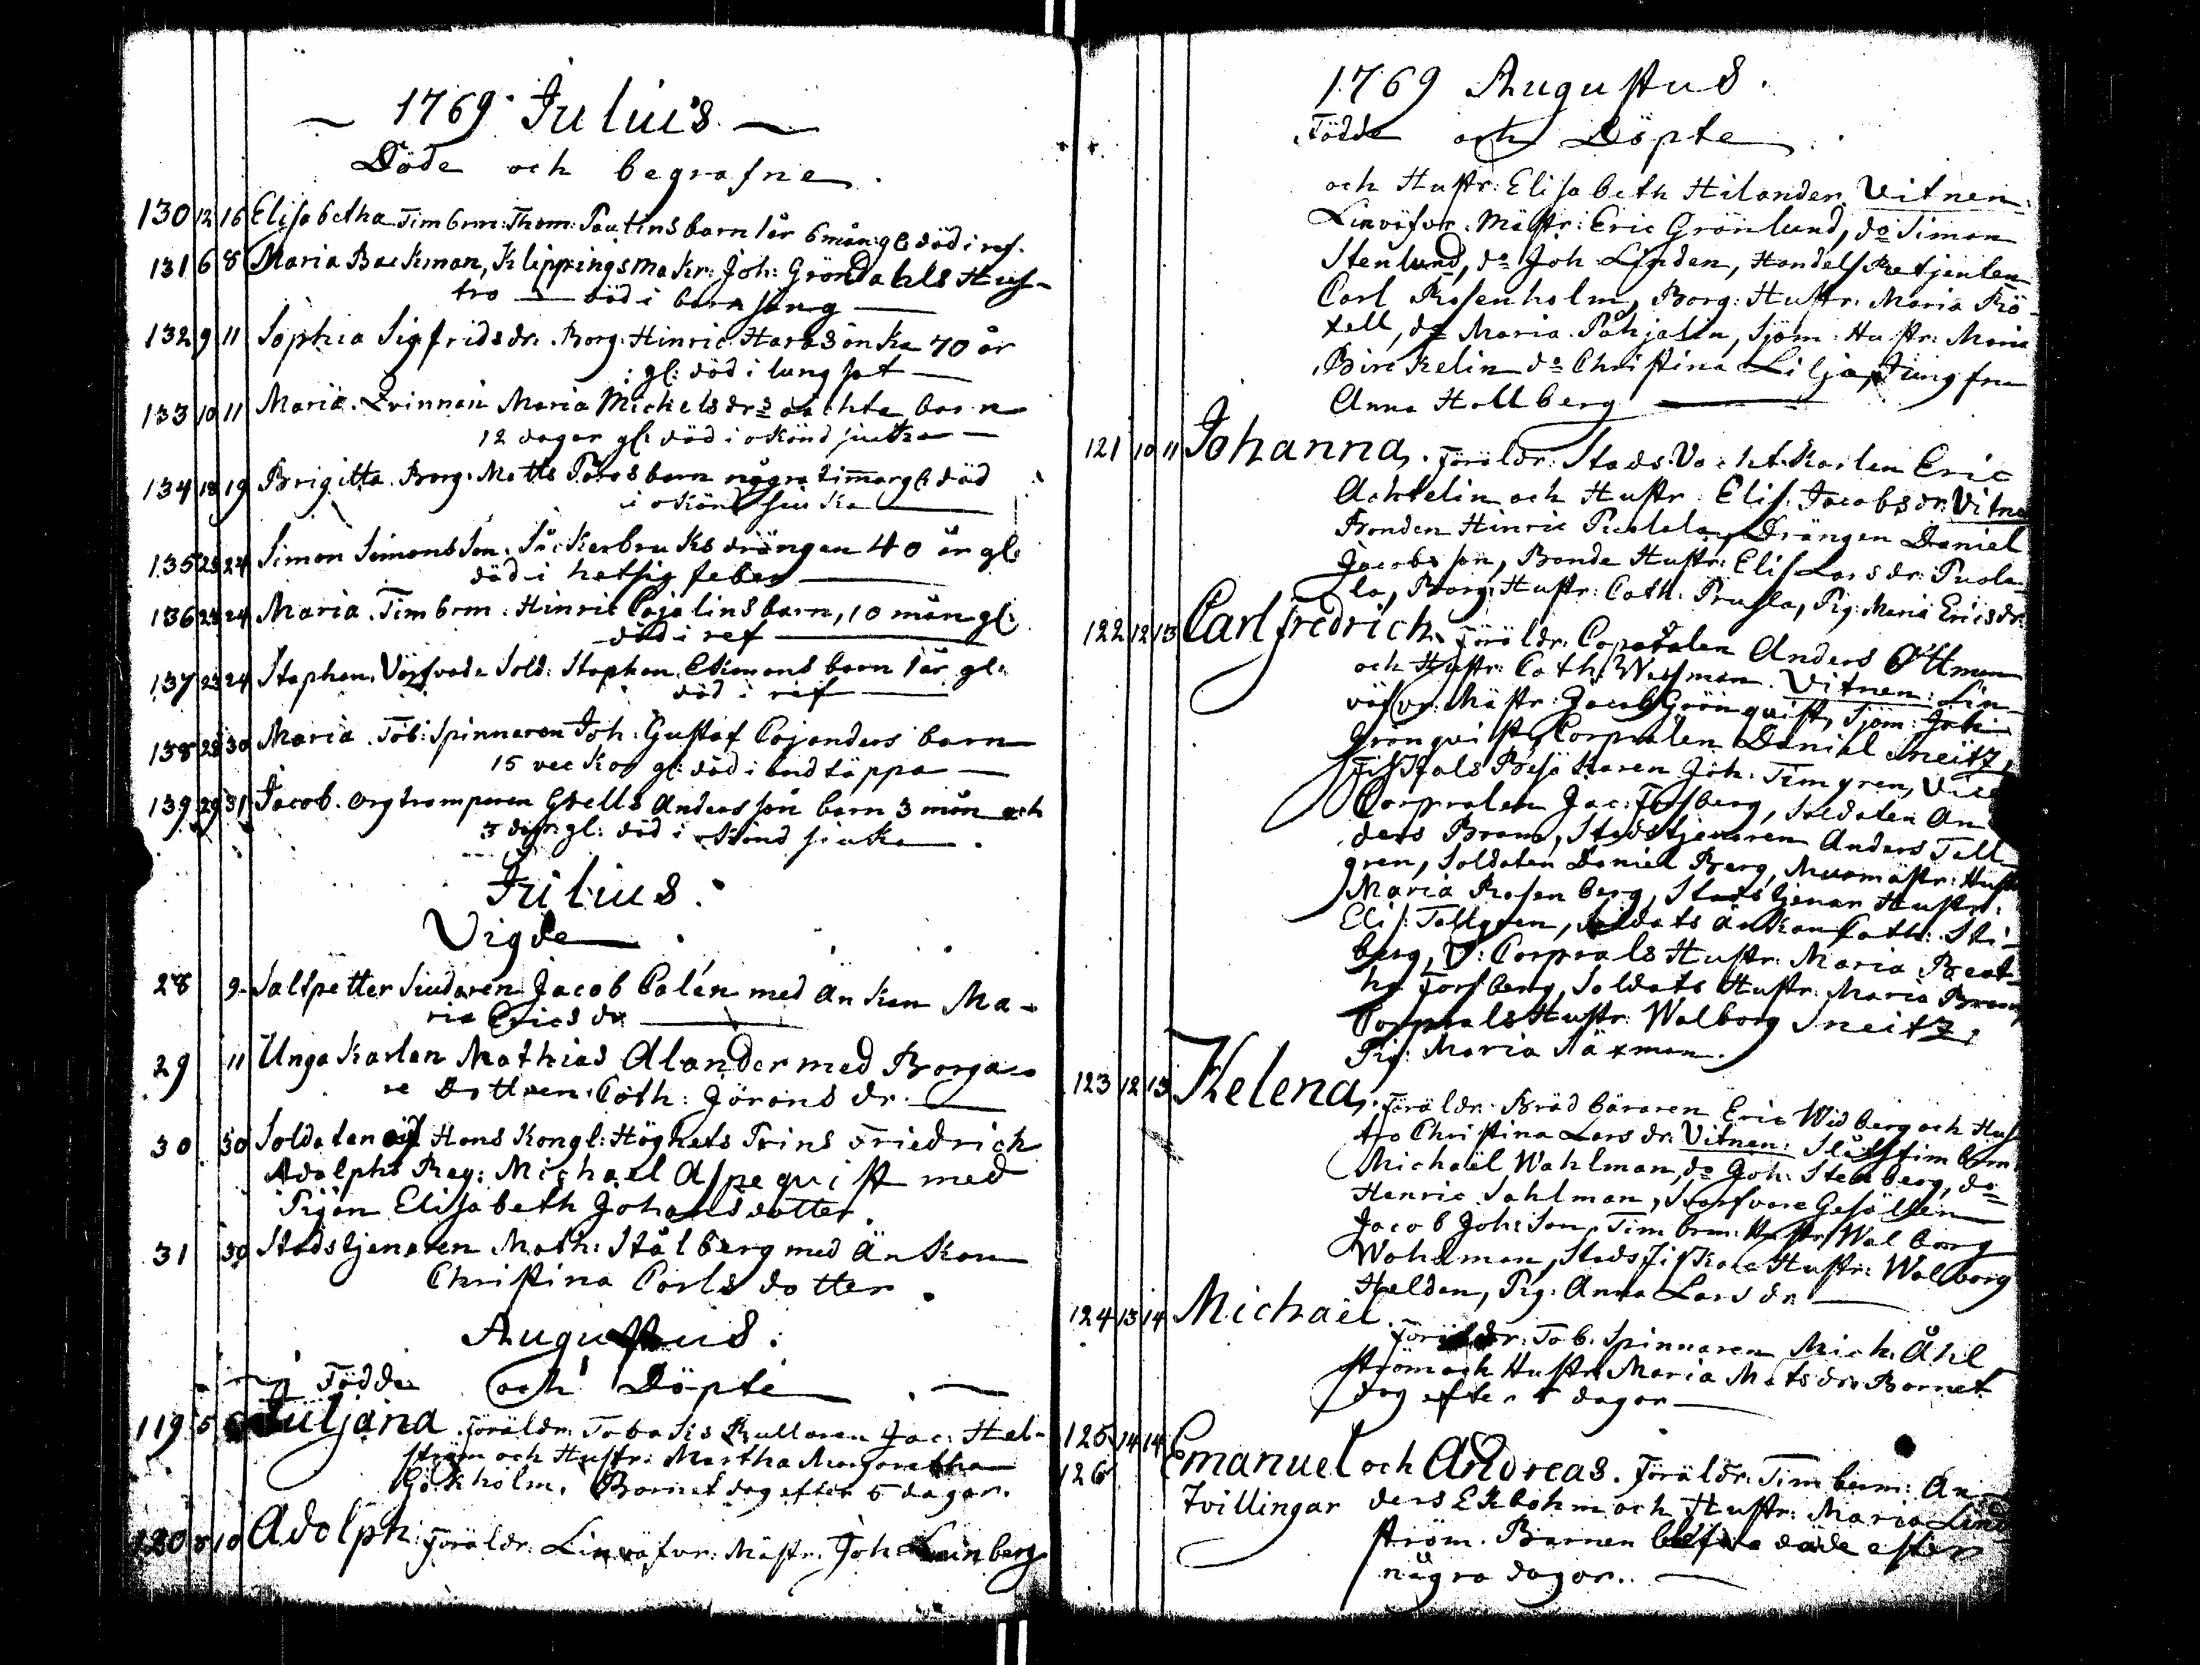 1769 Julius
Döde och begrafne.
130 12 16 Elisabetha Timbrm: Thom: Pautins barn 1 år 6 mån: gl: död i ref.
131 6 8 Maria Backman, Klippingsmakr: Joh: Gröndahls Hus-
tro död i barnsäng
132 9 11 Sophia Sigfridsdr. Borg: Hinric Haras änka 70 år
gl: död i lungsot
133 10 11 Maria. Qvinnan Maria Michelsdrs oächta barn
12 dagar gl: död i okänd siuka
134 18 19 Brigitta. Borg: Matts barn några timmar gl: död
i okänd siuka
135 23 24 Simon Simonsson. Såckerbruks drängen 40 år gl:
död i hetsig feber
136 23 24 Maria. Timbrm: Hinric Cajalins barn, 10 mån gl:
död i ref
137 23 24 Stephan. Värfvade Sold: Stephan Ekmans barn 1 år gl:
död i ref
138 28 30 Maria. Tob: Spinnaren Joh: Gustaf Cajanders barn
15 veckor gl: död i andtäppa
139 29 31 Jacob. Orgtramparen Gbells Andersson barn 3 mån och
3 dagr gl: död i okänd siuka
Julius.
Vigde
28 9 Saltpetter Siudaren Jacob Palén med Änkan Ma-
ria Ericsdr
29 11 Unga Karlen Mathias Alander med Borga-
re Dottren Cath: Jöransdr.
30 30 Soldaten af Hans Kongl: Höghets Prins Friedrich
Adolphs Reg: Michael Aspequist med
Pigan Elisabeth Johansdotter
31 30 Stadstjenaren Math: Stålberg med Änkan
Christina Carlsdotter.
Augustus.
Födde och Döpte
119 5 6 Juljana. Föräldr: Tobaks Rullaren Jac: Hel-
ström och Hustr: Martha Margaretha
Gökholm. Barnet dog efter 5 dagar.
120 8 10 Adolph. Föräldr: Linväfvr: Mästr: Joh:
1769 Augustus.
Födde och Döpte
och Hustr: Elisabeth Hilander Vitnen:
Linväfvr: Mästr: Eric Grönlund, do Simon
Stenlund, do Joh: Linden, Handels Betjenten
Carl Rosenholm, Borg: Hustr: Maria Kö-
tell, do Maria Påhjalin, Sjöm: Hustr: Maria
Birckelin do Christina Lilja, Jungfru
Anna Hallberg
121 10 11 Johanna. Föräldr: Stads Vachtkarlen Eric
Achtelin och Hustr: Elis: Jacobsdr: Vitne
Bonden Hinric Puolala, Drängen Daniel
Jacobsson, Bonde Hustr: Elis Larsdr: Puola-
la, Borg: Hustr: Cath: Prusla, Pig: Maria Ericsdr:
122 12 13 Carl fredrich. Föräldr: Copralen Anders Öttman
och Hustr: Cath: Wessman. Vitnen: Lin-
väfvr: Mästr: Jacob Grönqvist, Sjöm: Joh:
Grönqvist, Corpralen Daniel Sneitz,
Fiskals Besökaren Joh: Timgren, Vice
Corpralen Jac: Forsberg, Soldaten An-
ders Bram, Stadstjenaren Anders Tall-
gren, Soldaten Daniel Berg, Murmästr: Hustr
Maria Rosenberg, Stadstjenar Hustr:
Elis: Tallgren, Soldats Änkan Cath: Sti-
berg, V: Corprals Hustr: Maria Beat-
ha Forsberg, Soldats Hustr: Maria Bram,
Corprals Hustr: Walborg Sneitz,
Pig: Maria Näxman.
123 12 13 Helena. Föräldr: Brädbäraren Eric Widberg och Hus-
tro Christina Larsdr: Vitnen: Slåttstimbrm
Michaël Wahlman, do Joh: Stenberg, do
Henric Sahlman, Svarfvare Gesällen
Jacob Johsson, Timbrm: Hustr: Walborg
Wahlman, Stads Fiskals Hustr: Walborg
Helden, Pig: Anna Larsdr
124 13 14 Michaël.
Föräldr: Tob. Spinnaren Mich. Åhl
ström och Hustr: Maria Matsdr. Barnet
dog efter 5 dagar
125 14 14 Emanuel och Andreas. Föräldr: Timberm: An-
126 Tvillingar ders Ekbohm och Hustr: Maria Lind
ström. Barnen blefvo döde efter
några dagar.